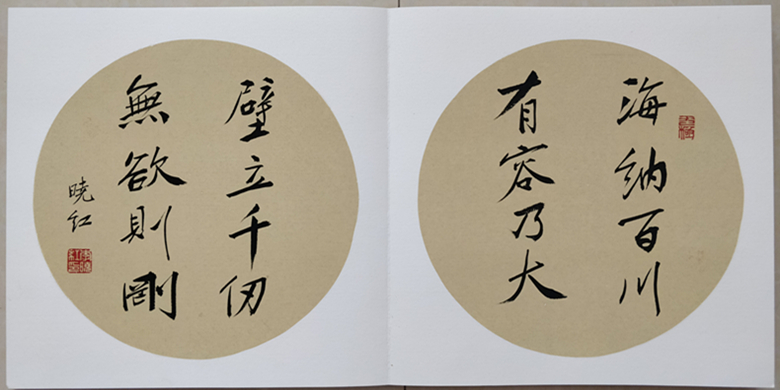 海納百川
有容乃大
壁立千仞
無欲則剛
曉紅